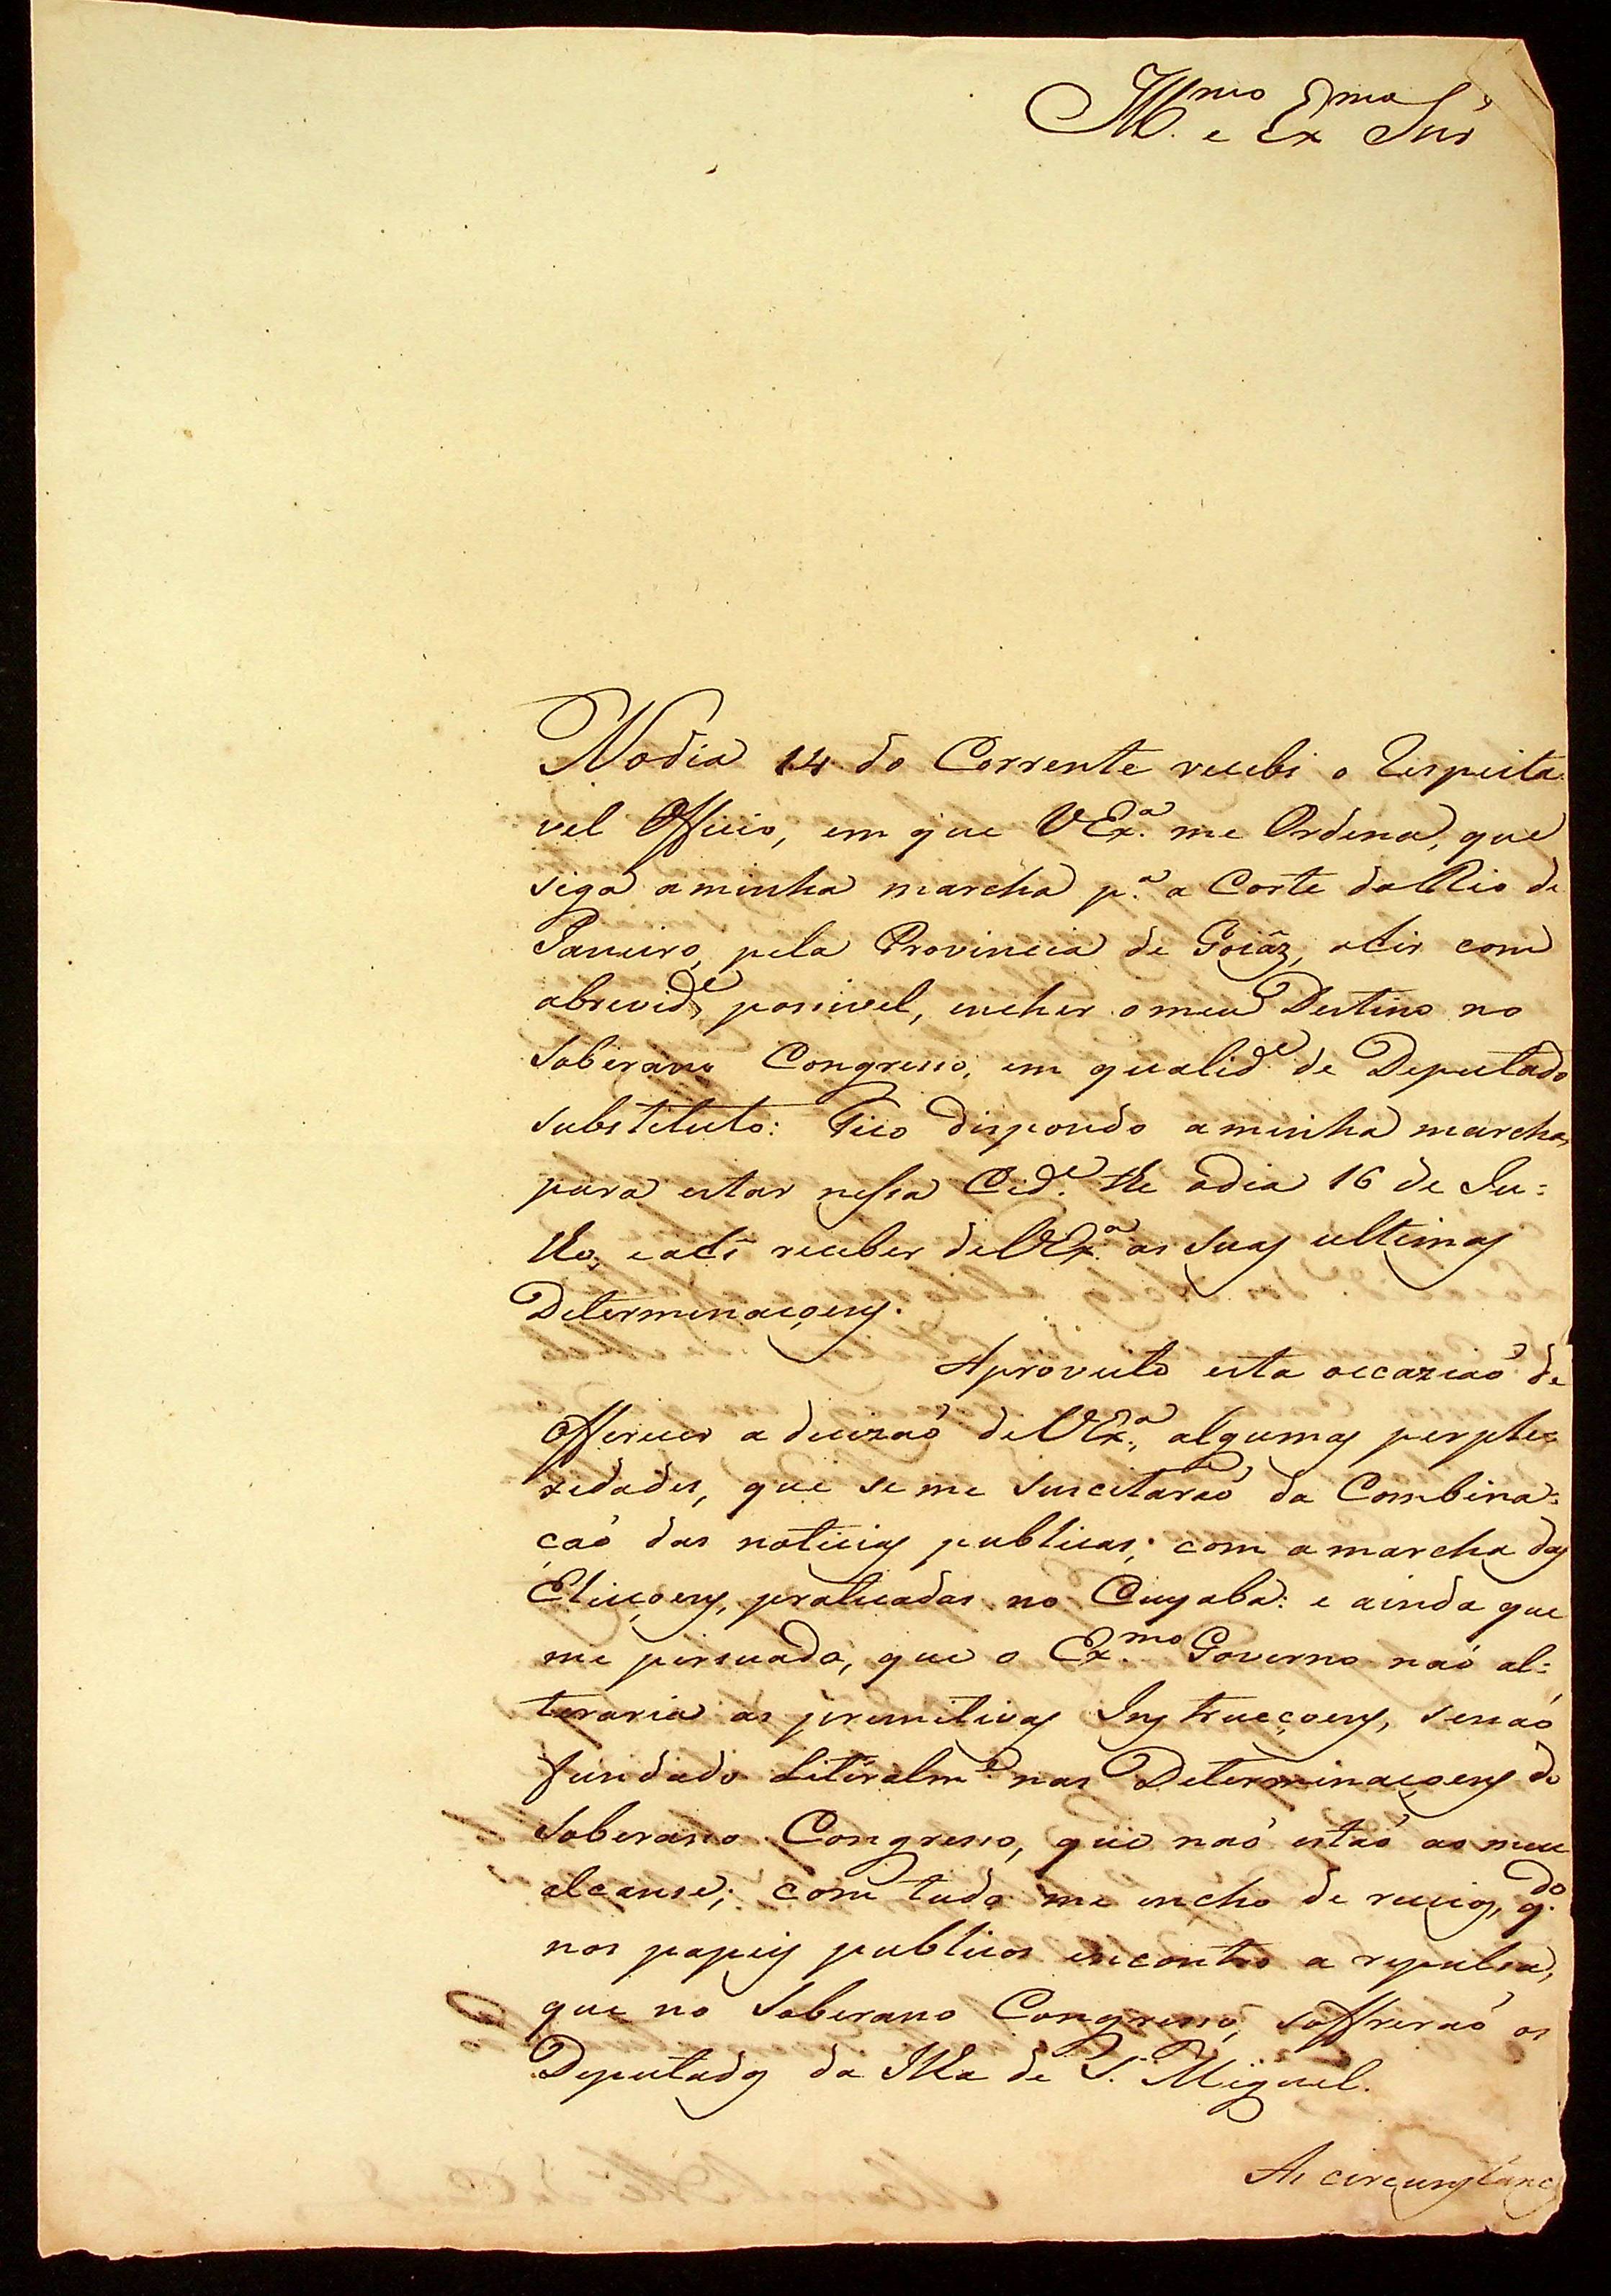 Ill.mo e Ex.mo Snr
No dia 14 do Corrente recebi o Respeita-
vel Officio, em que VEx.a me Ordena, que
siga a minha marcha p.a a Corte do Rio de
Janeiro, pela Provincia de Goiáz, a hir com
abrevid.e possivel, encher o meu Destino no
Soberano Congresso, em qualid.e de Deputado
substituto: Fico dispondo a minha marcha,
para estar nessa Cid.e the o dia 16 de Ju=
lho, e ahi receber de VEx.a as suas ultimas
Determinaçoens.
Aproveito esta occazião de
Offerecer a decizaõ de VEx.a, algumas perple=
xidades, que se me suscitaraõ da Combina=
çaõ das noticias publicas; com a marcha das
Eleiçoens, praticadas no Cuyabá: e ainda que
me persuado, que o Ex.mo Governo naõ al=
teraria as primitivas Instrucçoens, senaõ
fundado Literalm.e nas Determinaçoens do
Soberano Congresso, que naõ estaõ ao meu
alcanse; com tudo me encho de receios, q.do
nos papeis publicos encontro a repulsa,
que no Soberano Congresso, soffreraõ os
Deputados da Ilha de S. Miguel.
As circunstanc